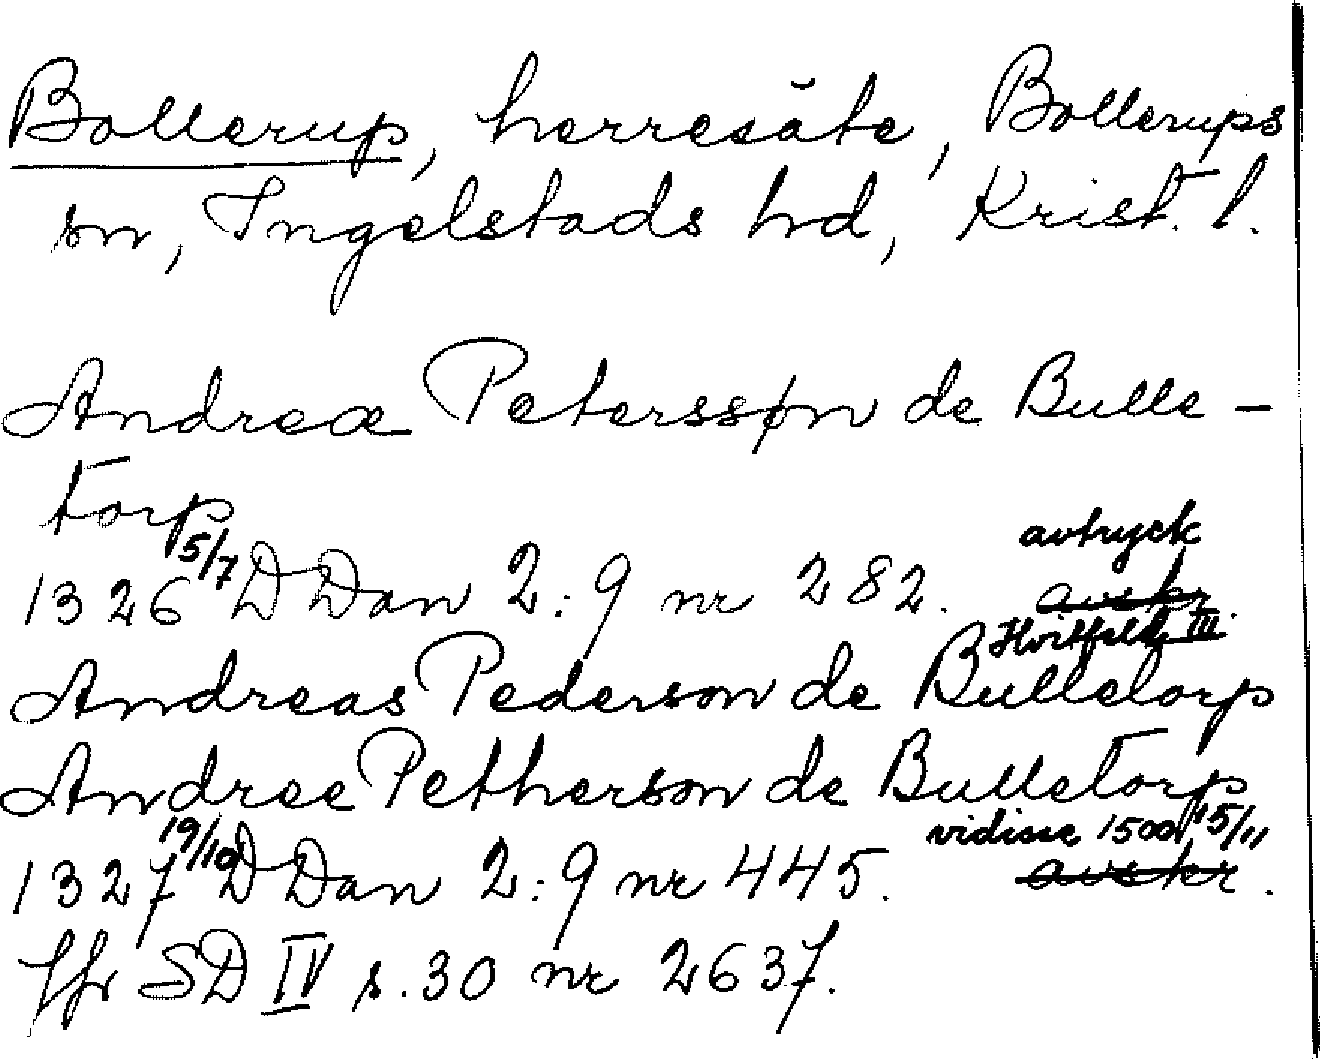 Bollerup, herresäte, Bollerups
sn, Ingelstads hd, Krist. l.
Andreæ Peterssøn de Bulle-
torp
avtryck
1326 5/7 DDan 2:9 nr 282. avskr.
Hvitfeldt III
Andreas Pederson de Bulletorp
Andree Petherson de Bulletorp
vidisse 1500 15/11
1327 19/10 DDan 2:9 nr 445. avskr.
Jfr SD IV s. 30 nr 2637.